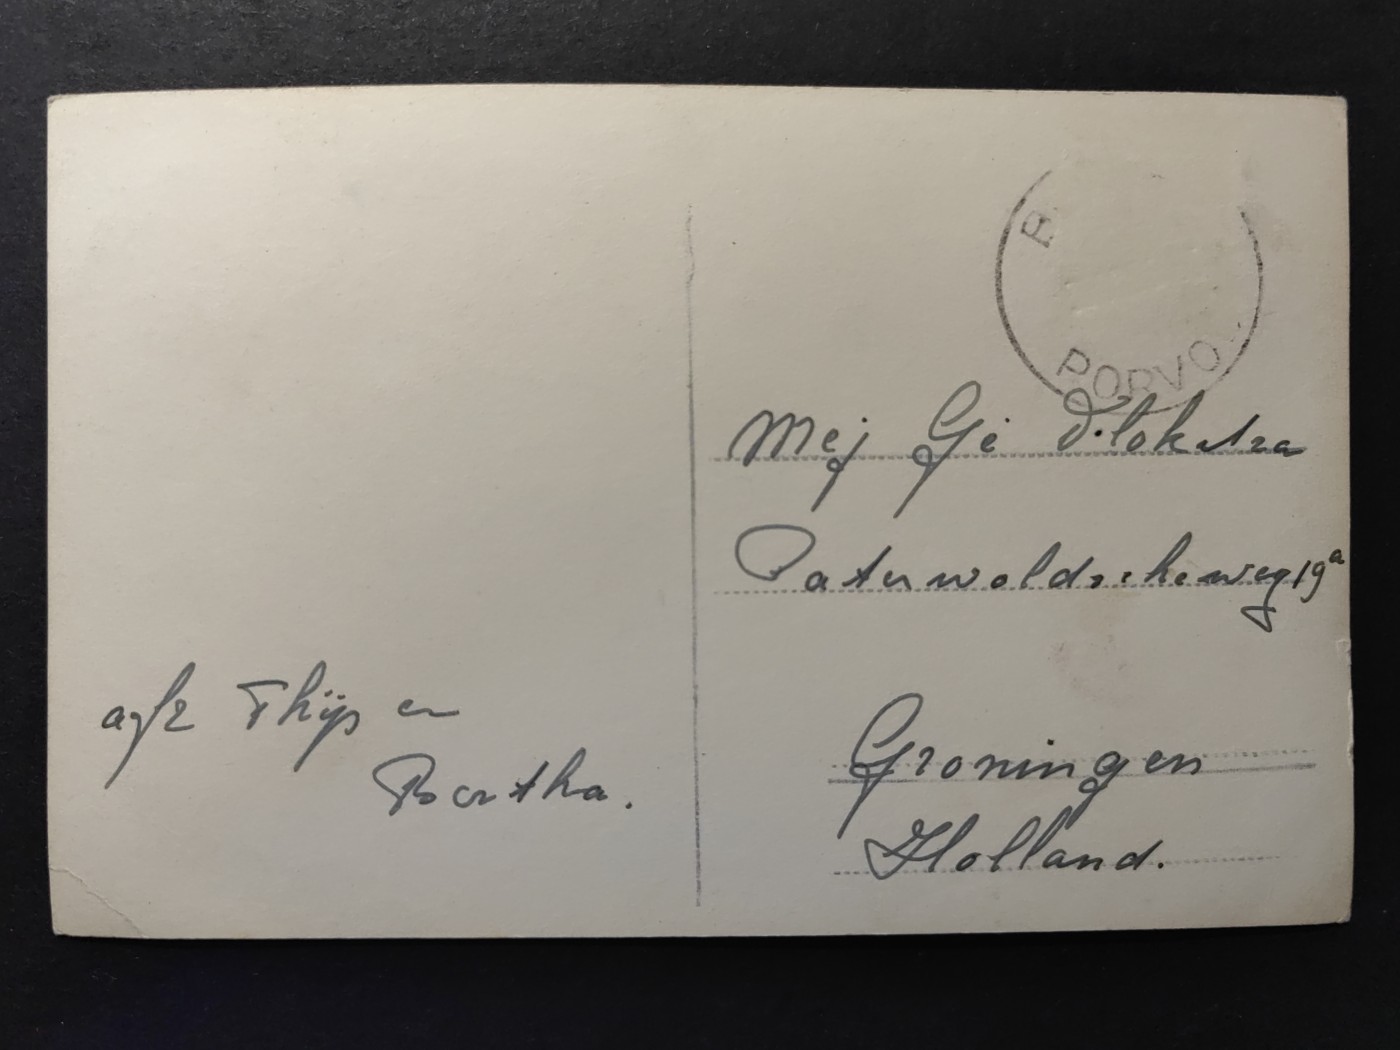 B
PORVO
Mej Gé Vlokstra
Paterwoldscheweg 19a
Groningen
Holland.
afz Thijs en
Bertha.